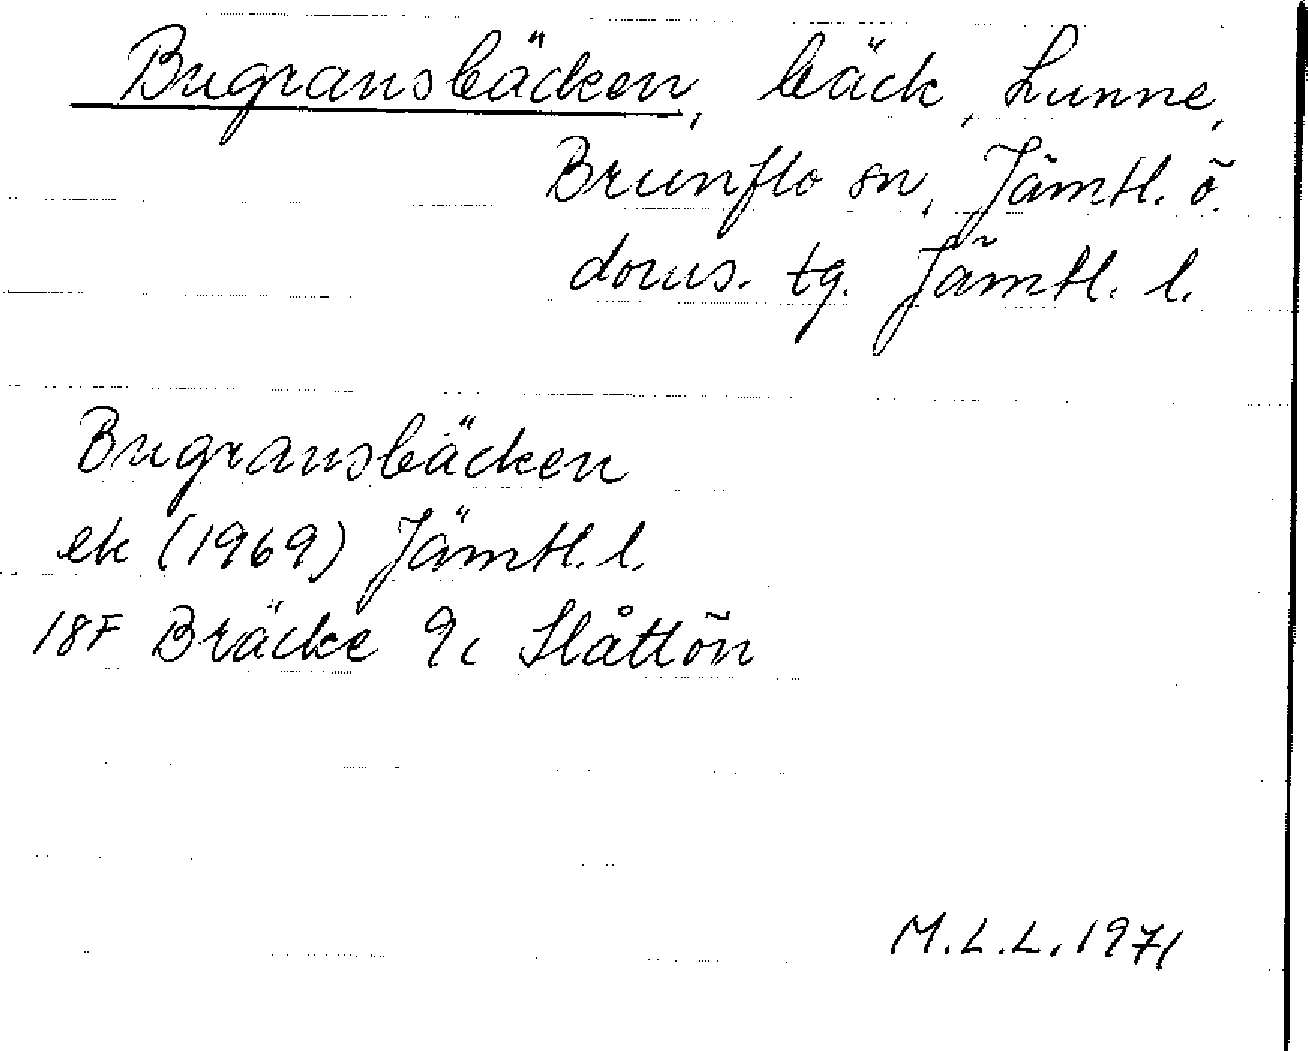 Bugransbäcken, bäck, Lunne,
Brunflo sn, Jämtl. ö.
doms. tg. Jämtl. l.
Bugransbäcken
ek (1969) Jämtl. l.
18F Bräcke 9c Slåttön
M.L.L. 1971